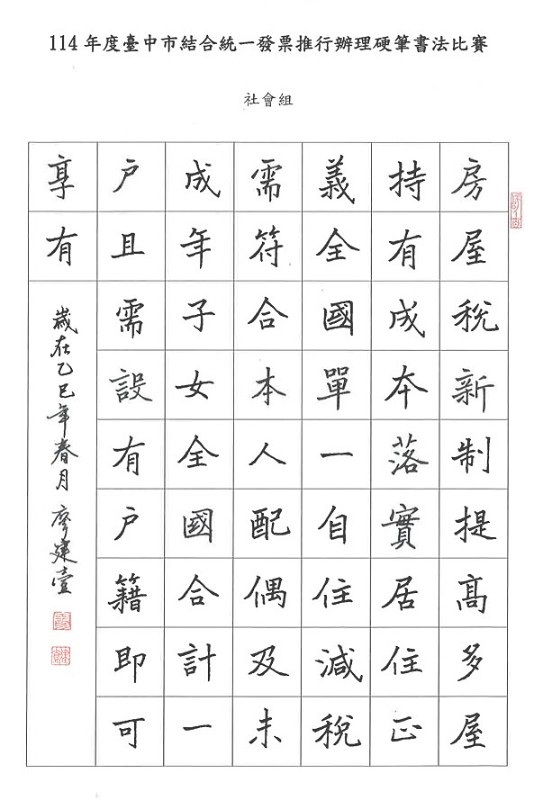 114年度臺中市結合統一發票推行辦理硬筆書法比賽
社會組
房屋稅新制提高多屋
持有成本落實居住正
義全國單一自住減稅
需符合本人配偶及未
成年子女全國合計一
戶且需設有戶籍即可
享有
歲在乙巳年春月廖建壹